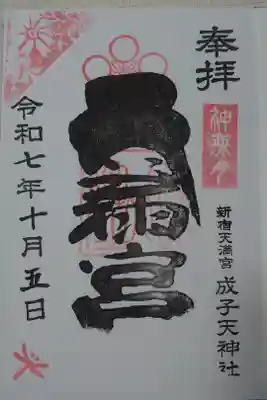 奉拝
神楽今
新宿天満宮 成子天神社
天満宮
令和七年十月五日